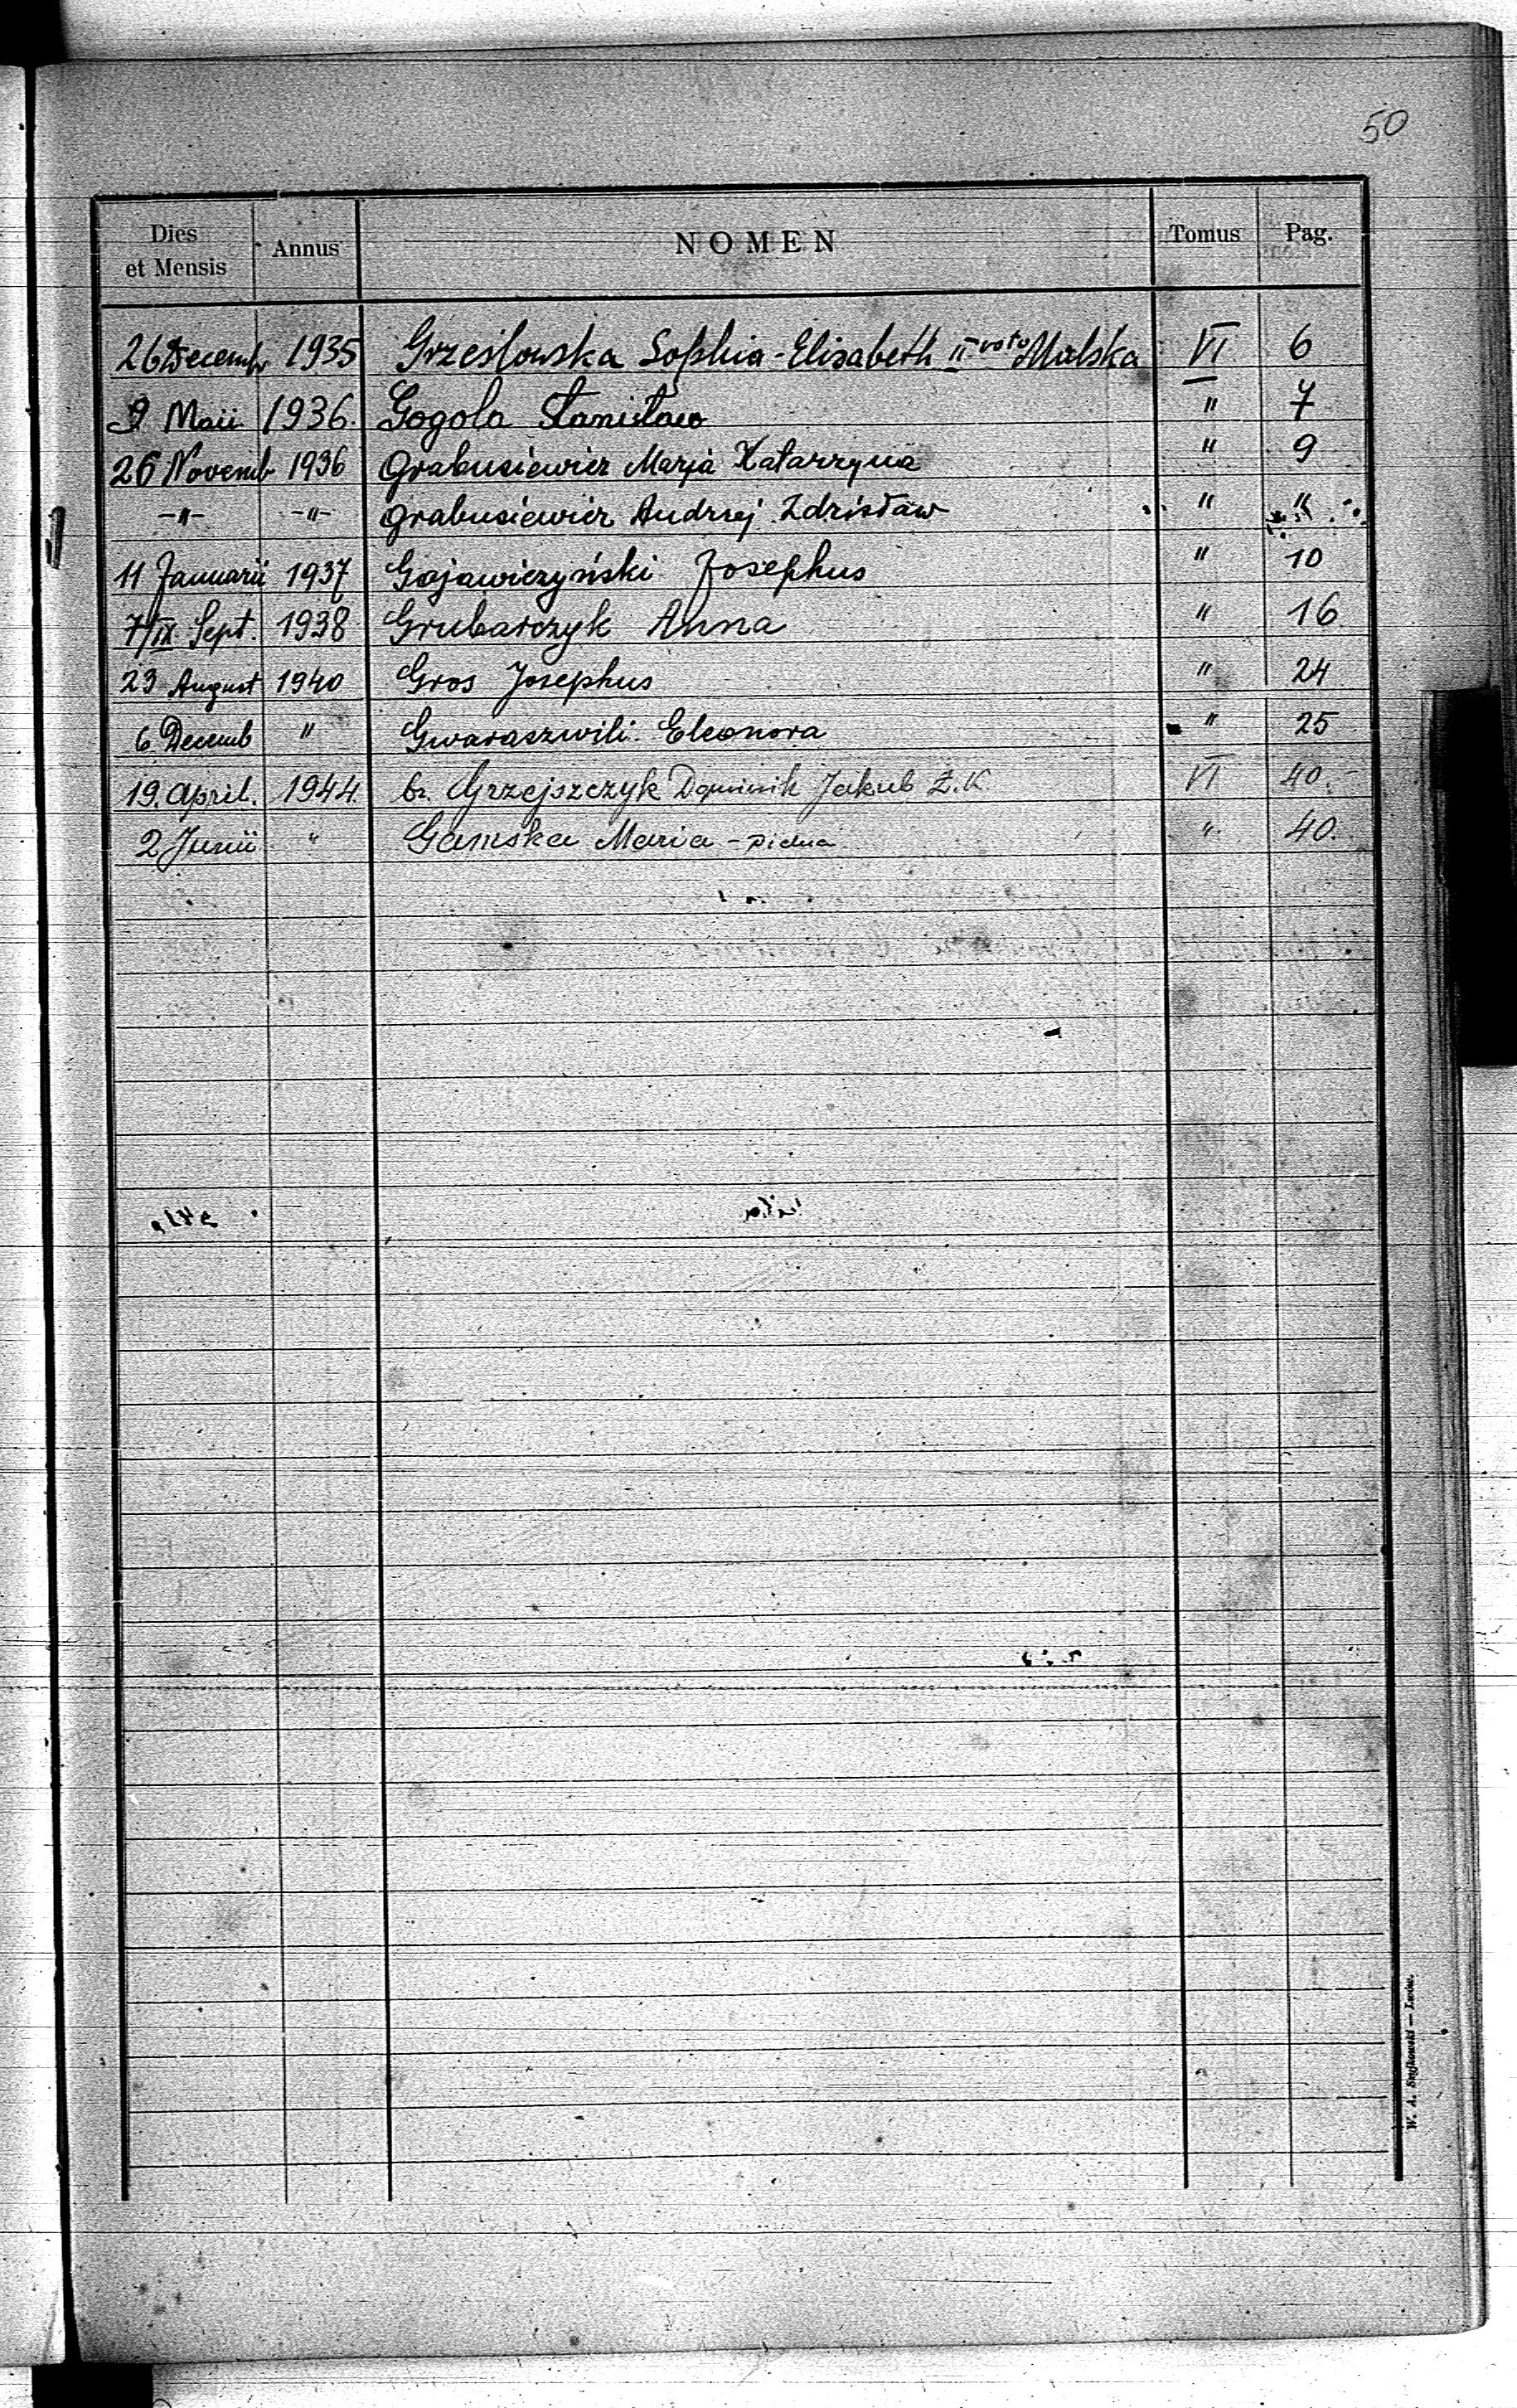 50
Dies et Mensis Annus NOMEN Tomus Pag.
26 Decembr 1935 Grzesłowska Sophia-Elisabeth II voto Malska VI 6
9 Maii 1936. Gogola Stanisław " 7
26 Novemb 1936 Grabusiewicz Marja Katarzyna " 9
-"- -"- Grabusiewicz Andrzej Zdzisław " "
11 Januarii 1937 Gajawiczyński Josephus " 10
7/IX Sept. 1938 Grubarczyk Anna " 16
23 August 1940 Gros Josephus " 24
6 Decemb " Gwaraszwili Eleonora " 25
19. April. 1944. br. Grzejszczyk Dominik Jakub Z.K. VI 40.
2 Junii " Gamska Maria - " 40.
W. A. Szyjkowski — Lwów.